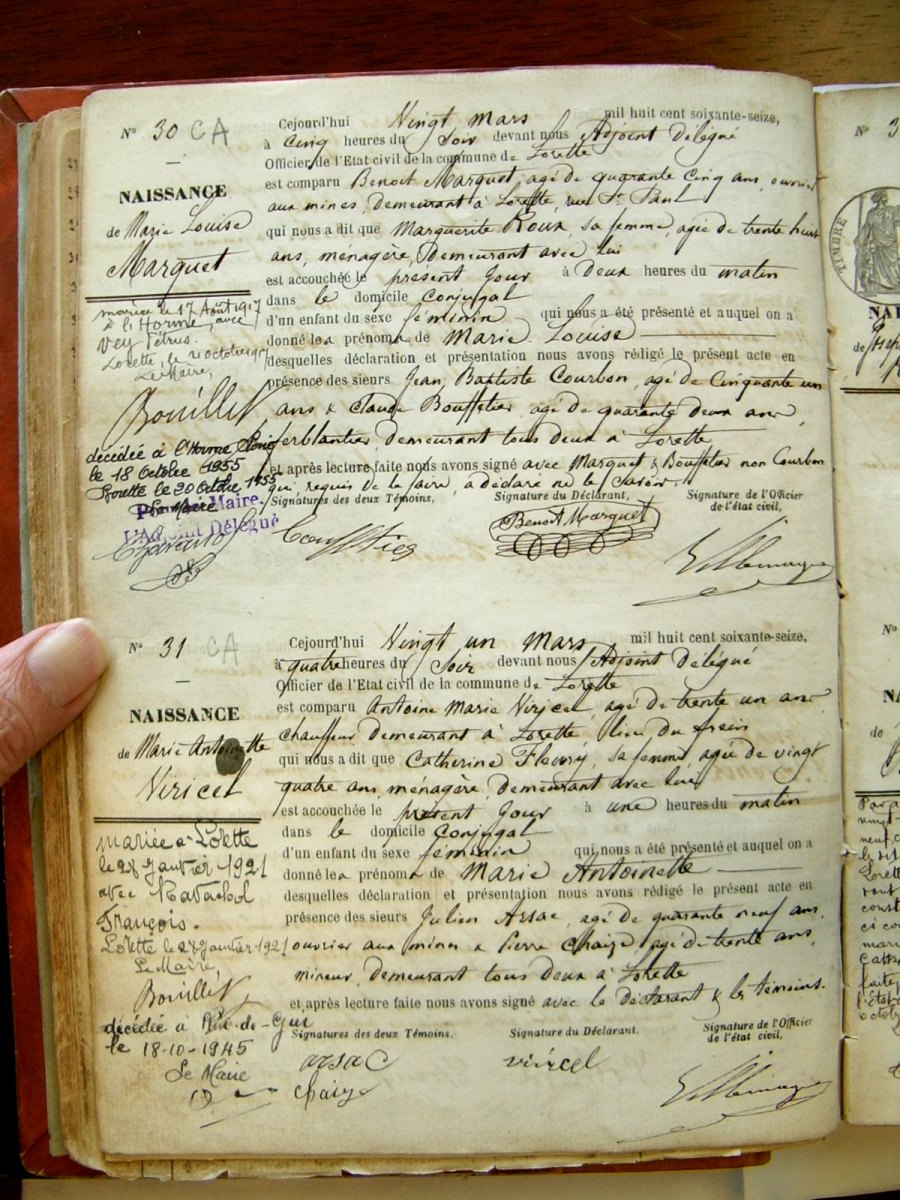 N° 30 CA
NAISSANCE
de Marie Louise
Marquet
mariée le 17 Août 1917
à l'Horme, avec
Vey Pétrus.
Lorette, le 21 octobre 1917
Le Maire,
Bouillet
décédée à l'Horme
le 18 Octobre 1955
Lorette le 20 Octobre 1955
Le Maire
L'Adjoint Délégué
Cejourd'hui Vingt mars mil huit cent soixante-seize,
à Cinq heures du Soir devant nous Adjoint délégué
Officier de l'Etat civil de la commune de Lorette
est comparu Benoit Marquet, agé de quarante Cinq ans, ouvrier
aux mines, demeurant à Lorette, rue St Paul
qui nous a dit que Marguerite Roux, sa femme, agée de trente huit
ans, ménagère, demeurant avec lui
est accouchée le présent Jour à Deux heures du matin
dans le domicile Conjugal
d'un enfant du sexe féminin qui nous a été présenté et auquel on a
donné les prénoms de Marie Louise
desquelles déclaration et présentation nous avons rédigé le présent acte en
présence des sieurs Jean Baptiste Courbon, agé de Cinquante un
ans & Claude Bouffetier, agé de quarante deux ans,
ferblantier, demeurant tous deux à Lorette
et après lecture faite nous avons signé avec Marquet & Bouffetier non Courbon
qui requis de la faire, a déclaré ne le savoir.
Signatures des deux Témoins, Signature du Déclarant, Signature de l'Officier
de l'état civil,
Benoit Marquet
N° 31 CA
NAISSANCE
de Marie Antoinette
Vericel
mariée à Lorette
le 28 Janvier 1921
avec Ravachol
François.
Lorette le 28 Janvier 1921
Le Maire,
Bouillet
décédée à Rive-de-Gier
le 18-10-1945
Le Maire
Cejourd'hui Vingt un Mars mil huit cent soixante-seize,
à quatre heures du Soir devant nous Adjoint délégué
Officier de l'Etat civil de la commune de Lorette
est comparu Antoine Marie Viricel, agé de trente un ans
chauffeur demeurant à Lorette, lieu du
qui nous a dit que Catherine Fleury, sa femme, agée de vingt
quatre ans, ménagère, demeurant avec lui
est accouchée le présent Jour à une heures du matin
dans le domicile Conjugal
d'un enfant du sexe féminin qui nous a été présenté et auquel on a
donné les prénoms de Marie Antoinette
desquelles déclaration et présentation nous avons rédigé le présent acte en
présence des sieurs Julien Arsac, agé de quarante neuf ans,
ouvrier aux mines & Pierre Chaize agé de trente ans,
mineur, demeurant tous deux à Lorette
et après lecture faite nous avons signé avec le déclarant & les témoins.
Signatures des deux Témoins. Signature du Déclarant. Signature de l'Officier
de l'état civil,
arsac viricel
chaize
TIMBRE